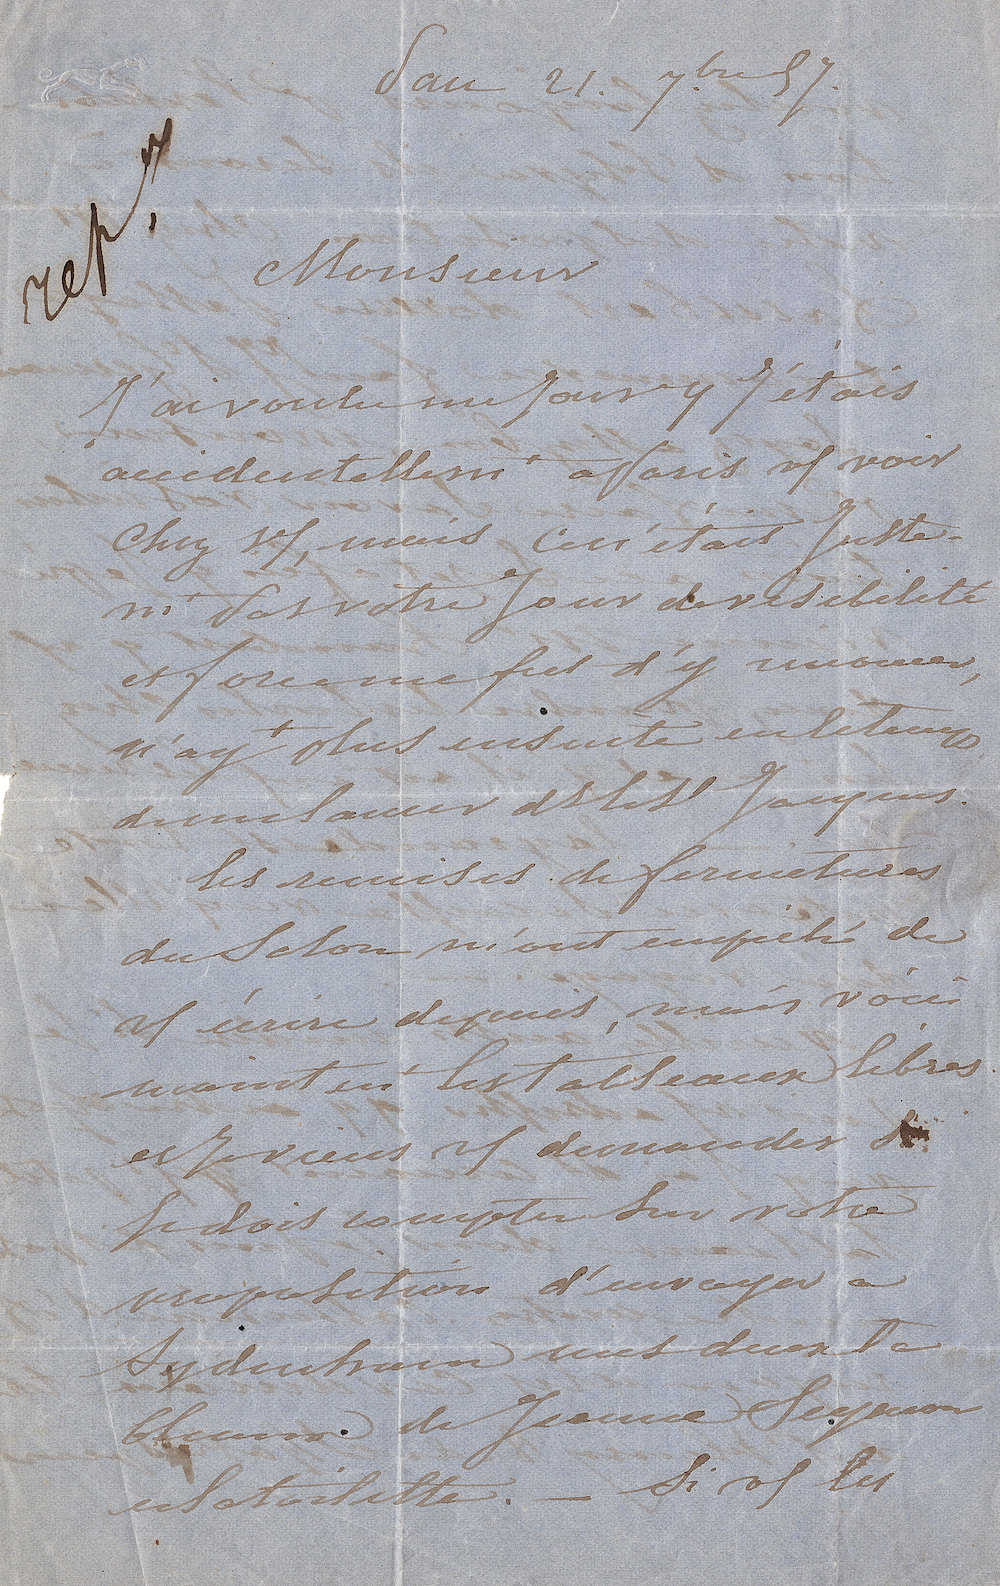 Pau 21. 7.bre 57.
rep.
Monsieur
J'ai voulu un Jour q J'étais
accidentellem^t à Paris vs voir
chez vs, mais ce n'étais Juste-
m^t pas votre Jour de visibilité
et force me fut d'y renoncer,
n'ay^t plus ensuite eu le temps
de me lancer St Jacques.
les remises de fermetures
du Salon m'ont empêché de
vs écrire depuis, mais voici
maint'en^t les tableaux libres
et Je viens vs demander si
Je dois compter sur votre
proposition d'envoyer à
Sydenham mes deux ta
bleaux de Jeanne Seymour
et la toilette. — Si vs les